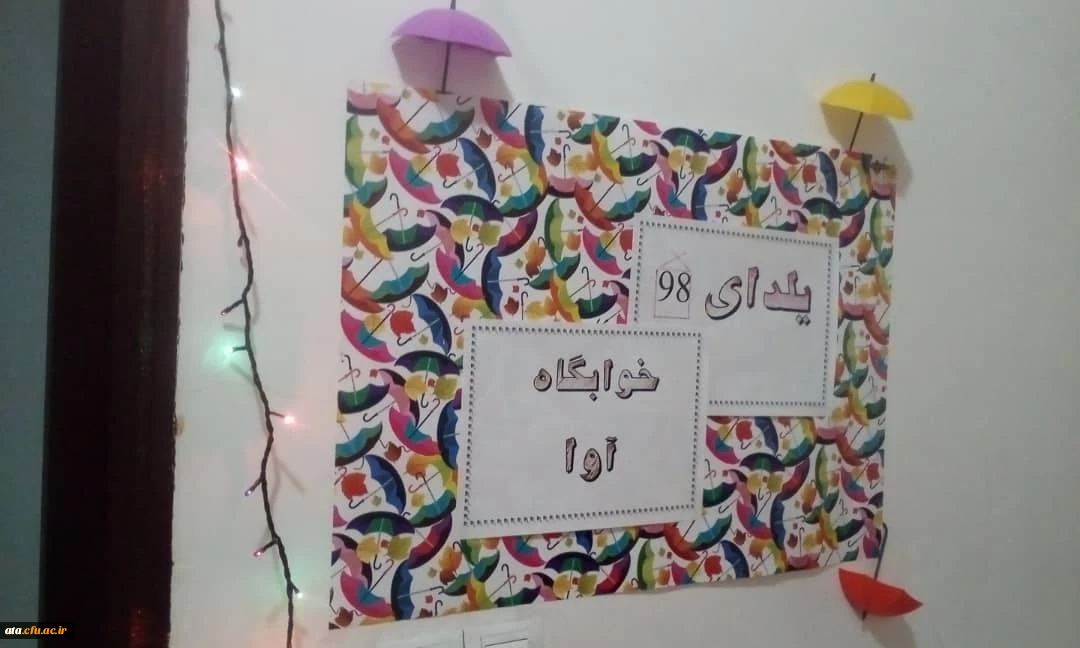 یلدای 98
خوابگاه
آوا
ata.cfu.ac.ir